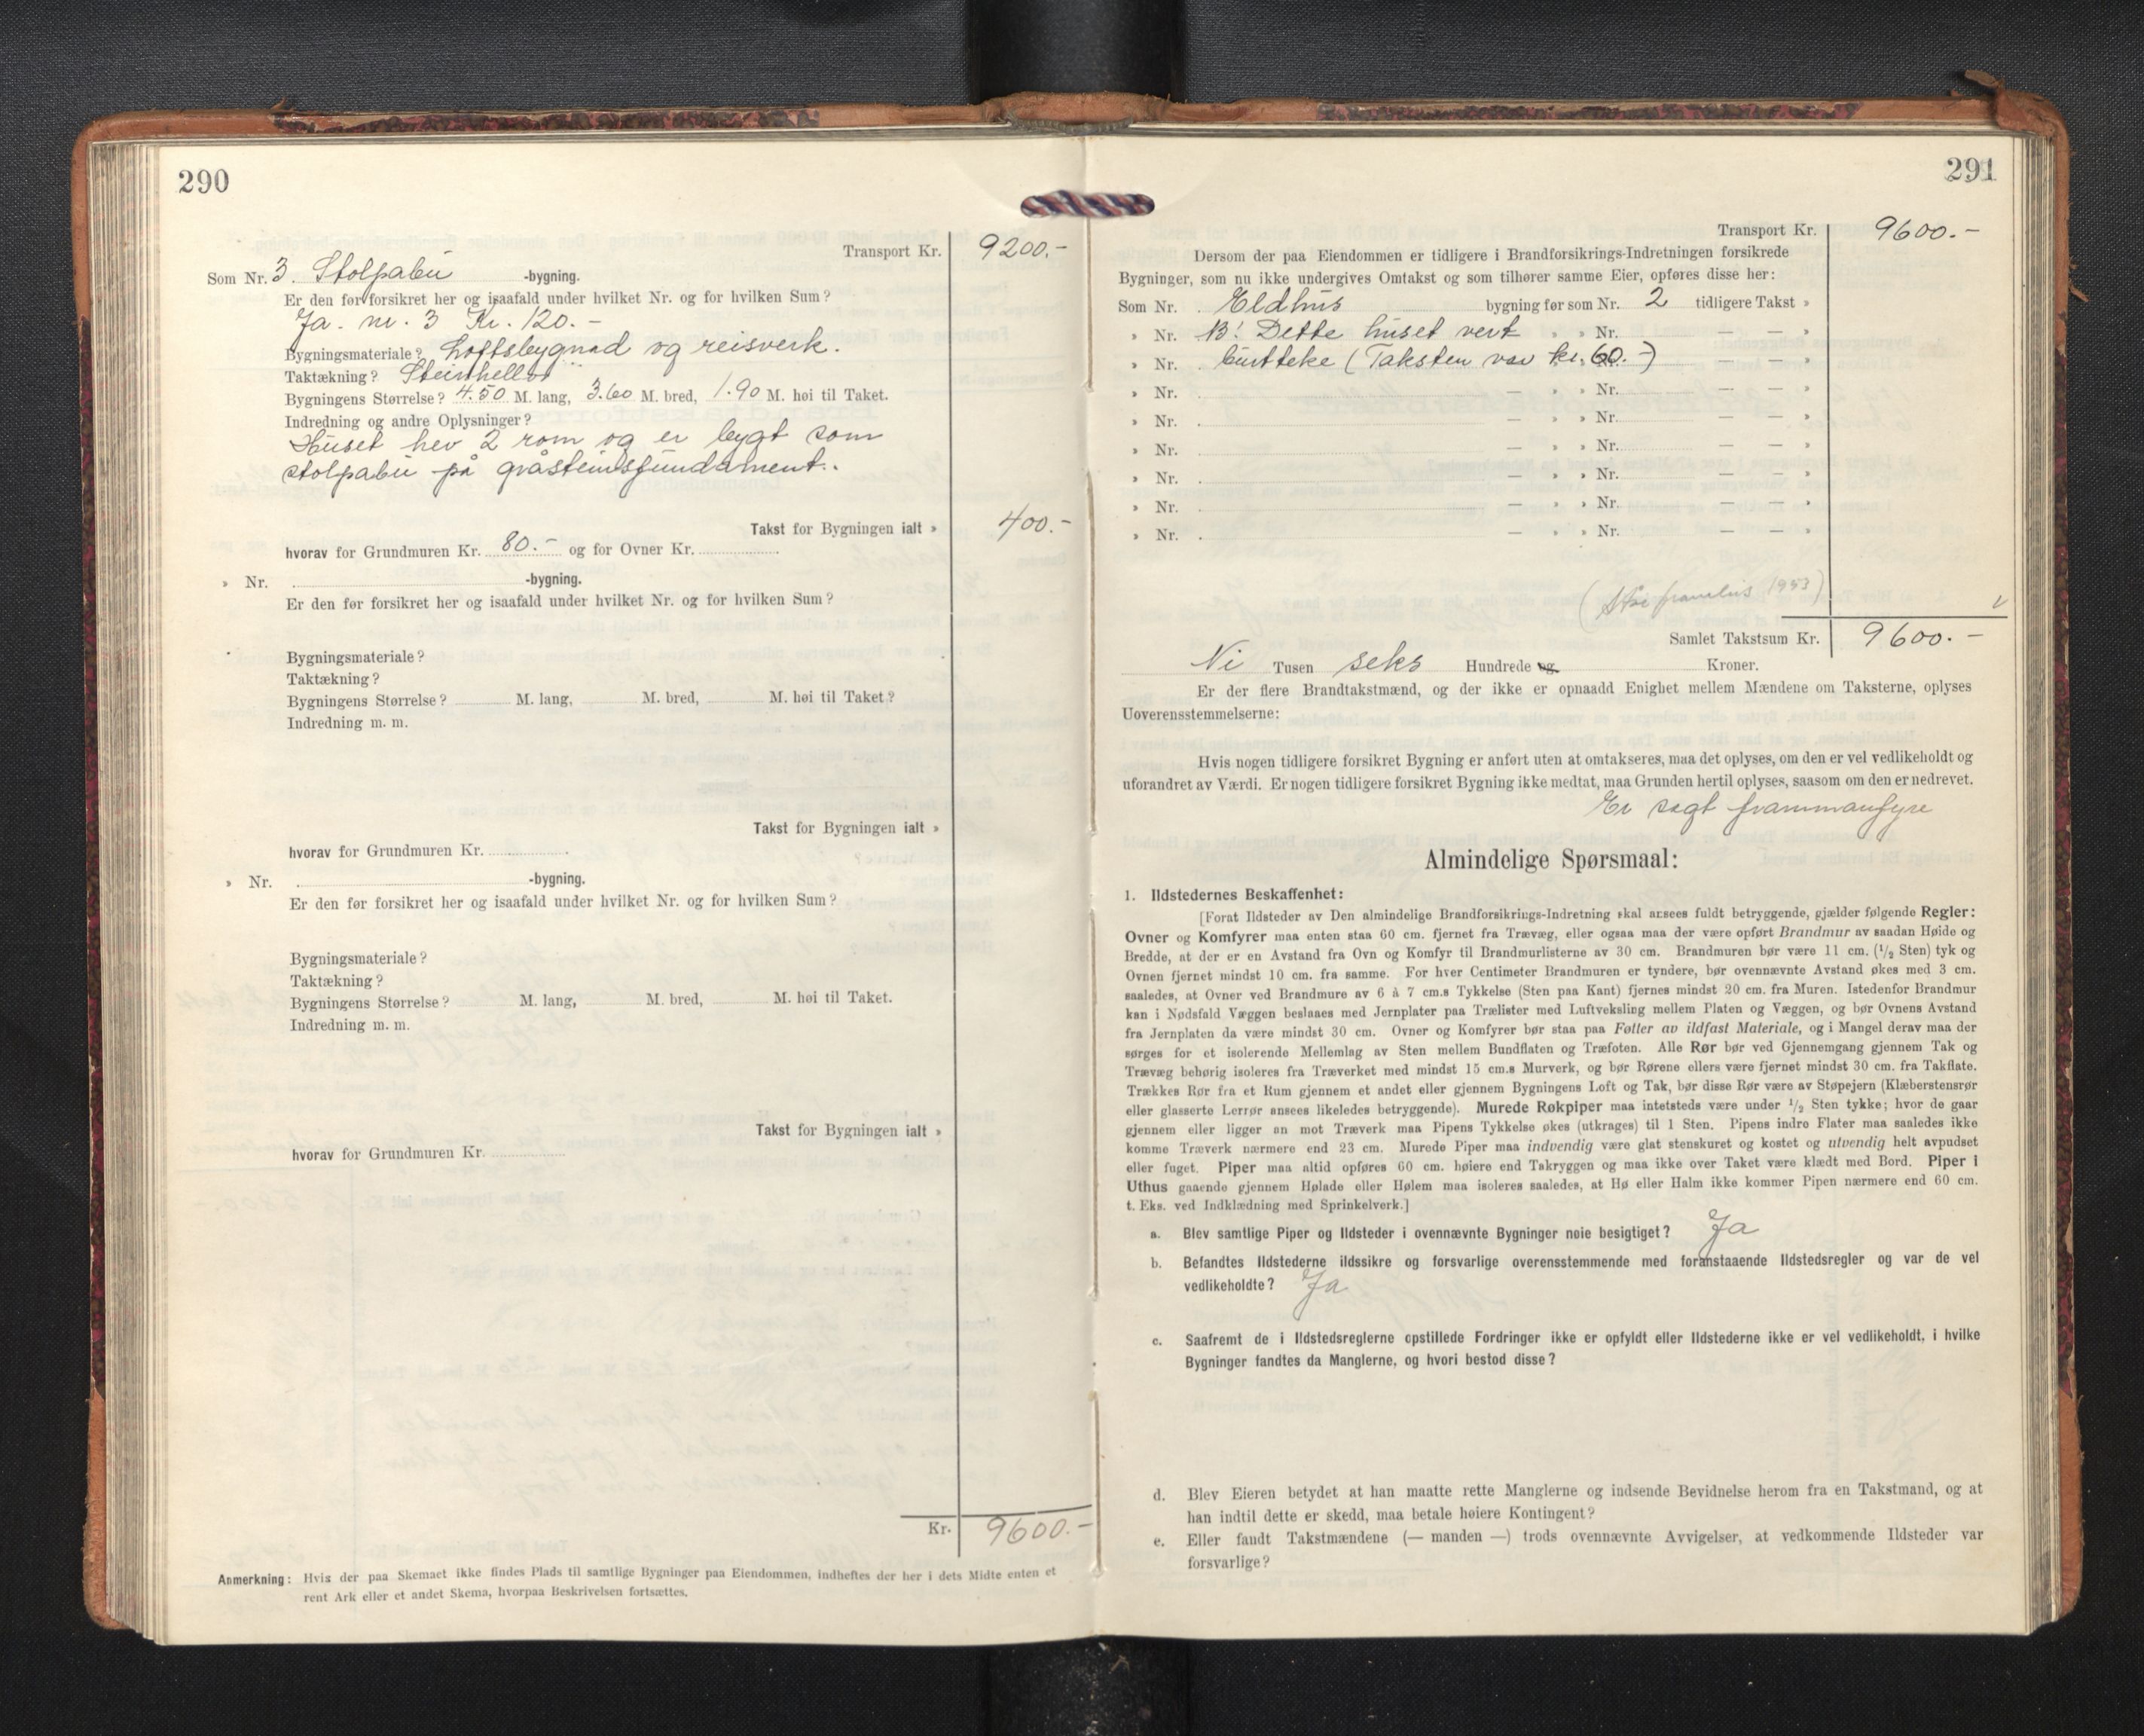 290
Transport Kr. 9200.-
Som Nr. 3. Stolpabu -bygning.
Er den før forsikret her og isaafald under hvilket Nr. og for hvilken Sum?
Ja. nr. 3 Kr. 120.-
Bygningsmateriale? Loftsbygnad og reisverk.
Taktækning? Steinhellor
Bygningens Størrelse? 4.50 M. lang, 3.60 M. bred, 1.90 M. høi til Taket.
Indredning og andre Oplysninger?
Huset hev 2 rom og er bygt som
stolpabu på gråsteinsfundament.
Takst for Bygningen ialt » 400.-
hvorav for Grundmuren Kr. 80.- og for Ovner Kr.
» Nr. -bygning.
Er den før forsikret her og isaafald under hvilket Nr. og for hvilken Sum?
Bygningsmateriale?
Taktækning?
Bygningens Størrelse? M. lang, M. bred, M. høi til Taket?
Indredning m. m.
Takst for Bygningen ialt »
hvorav for Grundmuren Kr.
» Nr. -bygning.
Er den før forsikret her og isaafald under hvilket Nr. og for hvilken Sum?
Bygningsmateriale?
Taktækning?
Bygningens Størrelse? M. lang, M. bred, M. høi til Taket.
Indredning m. m.
Takst for Bygningen ialt »
hvorav for Grundmuren Kr.
Kr. 9600.-
Anmerkning: Hvis der paa Skemaet ikke findes Plads til samtlige Bygninger paa Eiendommen, indheftes der her i dets Midte enten et
rent Ark eller et andet Skema, hvorpaa Beskrivelsen fortsættes.
291
Transport Kr. 9600.-
Dersom der paa Eiendommen er tidligere i Brandforsikrings-Indretningen forsikrede
Bygninger, som nu ikke undergives Omtakst og som tilhører samme Eier, opføres disse her:
Som Nr. Eldhus bygning før som Nr. 2 tidligere Takst »
» Nr. NB! Dette huset vert » » Nr. — — »
» Nr. burtteke (Taksten var kr. 60.-)
» Nr. — » » Nr. — — »
» Nr. — » » Nr. — — »
» Nr. — » » Nr. — — »
» Nr. — » » Nr. — — »
» Nr. — » » Nr. — — »
» Nr. — » » Nr. — — »
1953)
Samlet Takstsum Kr. 9600.-
Ni Tusen seks Hundrede og Kroner.
Er der flere Brandtakstmænd, og der ikke er opnaadd Enighet mellem Mændene om Taksterne, oplyses
Uoverensstemmelserne:
Hvis nogen tidligere forsikret Bygning er anført uten at omtakseres, maa det oplyses, om den er vel vedlikeholdt og
uforandret av Værdi. Er nogen tidligere forsikret Bygning ikke medtat, maa Grunden hertil oplyses, saasom om den er nedrevet.
Er sagt frammanfyre
Almindelige Spørsmaal:
1. Ildstedernes Beskaffenhet:
[Forat Ildsteder av Den almindelige Brandforsikrings-Indretning skal ansees fuldt betryggende, gjælder følgende Regler:
Ovner og Komfyrer maa enten staa 60 cm. fjernet fra Trævæg, eller ogsaa maa der være opført Brandmur av saadan Høide og
Bredde, at der er en Avstand fra Ovn og Komfyr til Brandmurlisterne av 30 cm. Brandmuren bør være 11 cm. (1/2 Sten) tyk og
Ovnen fjernet mindst 10 cm. fra samme. For hver Centimeter Brandmuren er tyndere, bør ovennævnte Avstand økes med 3 cm.
saaledes, at Ovner ved Brandmure av 6 à 7 cm.s Tykkelse (Sten paa Kant) fjernes mindst 20 cm. fra Muren. Istedenfor Brandmur
kan i Nødsfald Væggen beslaaes med Jernplater paa Trælister med Luftveksling mellem Platen og Væggen, og bør Ovnens Avstand
fra Jernplaten da være mindst 30 cm. Ovner og Komfyrer bør staa paa Føtter av ildfast Materiale, og i Mangel derav maa der
sørges for et isolerende Mellemlag av Sten mellem Bundflaten og Træfoten. Alle Rør bør ved Gjennemgang gjennem Tak og
Trævæg behørig isoleres fra Træverket med mindst 15 cm.s Murverk, og bør Rørene ellers være fjernet mindst 30 cm. fra Takflate.
Trækkes Rør fra et Rum gjennem et andet eller gjennem Bygningens Loft og Tak, bør disse Rør være av Støpejern (Klæberstensrør
eller glasserte Lerrør ansees likeledes betryggende). Murede Røkpiper maa intetsteds være under 1/2 Sten tykke; hvor de gaar
gjennem eller ligger an mot Træverk maa Pipens Tykkelse økes (utkrages) til 1 Sten. Pipens indre Flater maa saaledes ikke
komme Træverk nærmere end 23 cm. Murede Piper maa indvendig være glat stenskuret og kostet og utvendig helt avpudset
eller fuget. Piper maa altid opføres 60 cm. høiere end Takryggen og maa ikke over Taket være klædt med Bord. Piper i
Uthus gaaende gjennem Hølade eller Hølem maa isoleres saaledes, at Hø eller Halm ikke kommer Pipen nærmere end 60 cm.
t. Eks. ved Indklædning med Sprinkelverk.]
a. Blev samtlige Piper og Ildsteder i ovennævnte Bygninger nøie besigtiget? Ja
b. Befandtes Ildstederne ildssikre og forsvarlige overensstemmende med foranstaaende Ildstedsregler og var de vel
vedlikeholdte? Ja
c. Saafremt de i Ildstedsreglerne opstillede Fordringer ikke er opfyldt eller Ildstederne ikke er vel vedlikeholdt, i hvilke
Bygninger fandtes da Manglerne, og hvori bestod disse?
d. Blev Eieren betydet at han maatte rette Manglerne og indsende Bevidnelse herom fra en Takstmand, og at
han indtil dette er skedd, maa betale høiere Kontingent?
e. Eller fandt Takstmændene (— manden —) trods ovennævnte Avvigelser, at vedkommende Ildsteder var
forsvarlige?